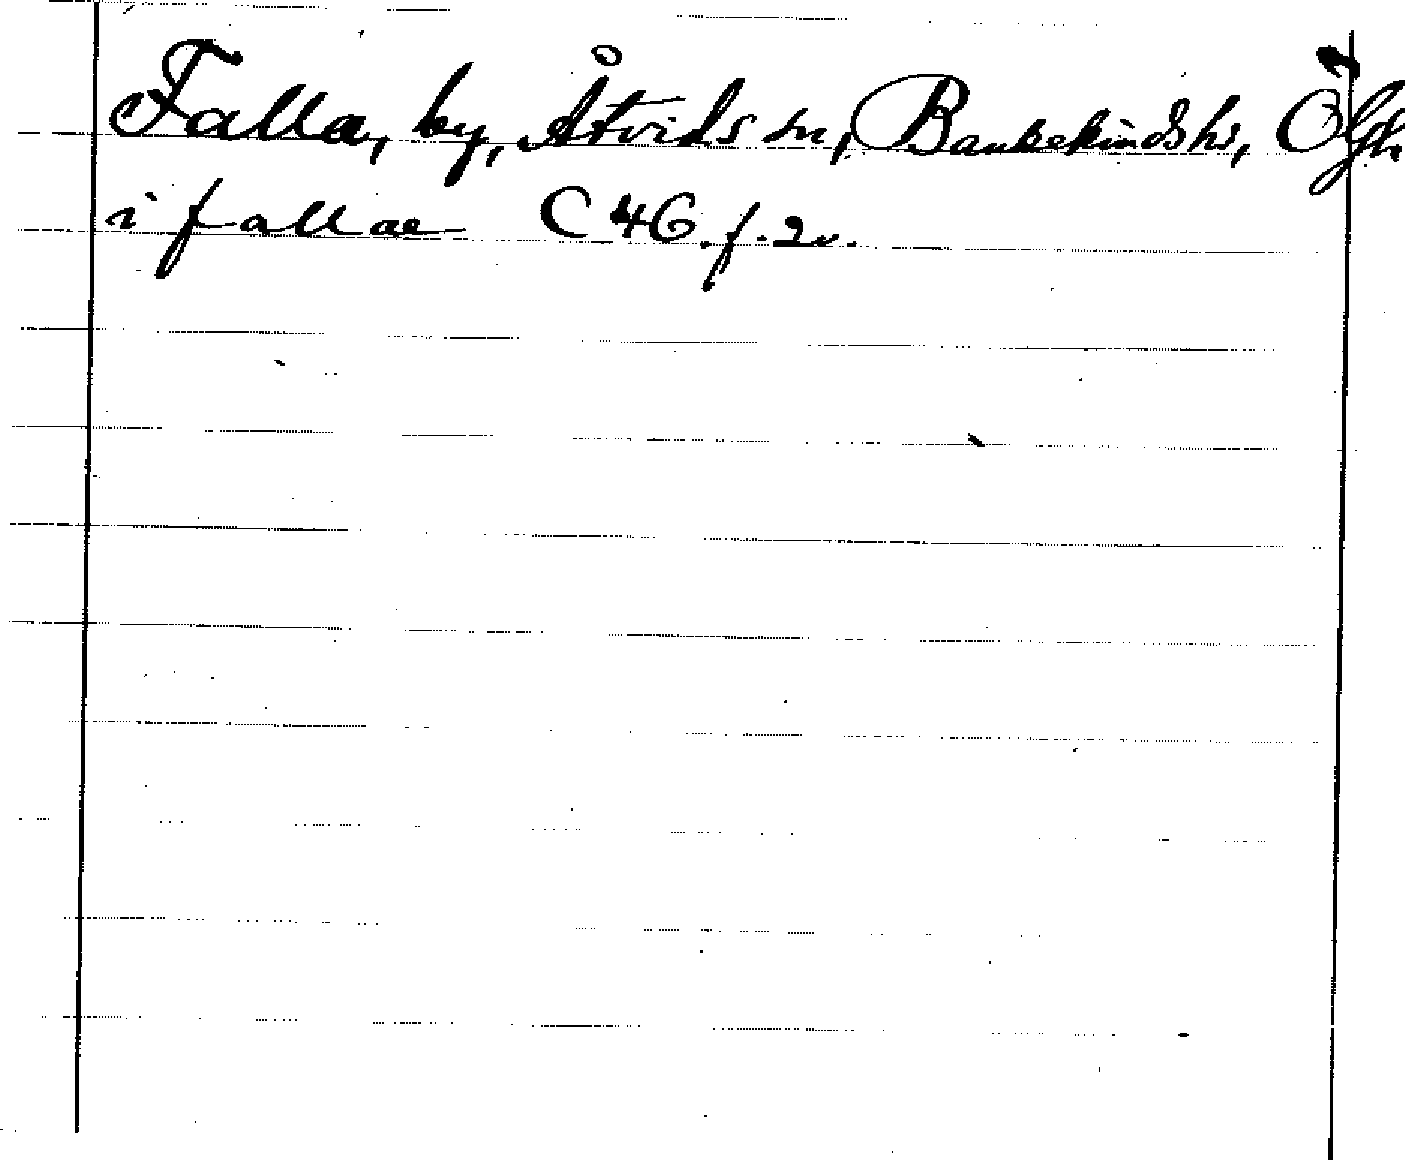 Falla, by, Åtvids sn, Bankekinds hd, Ögtl
i fallae C 46. f. 2v.